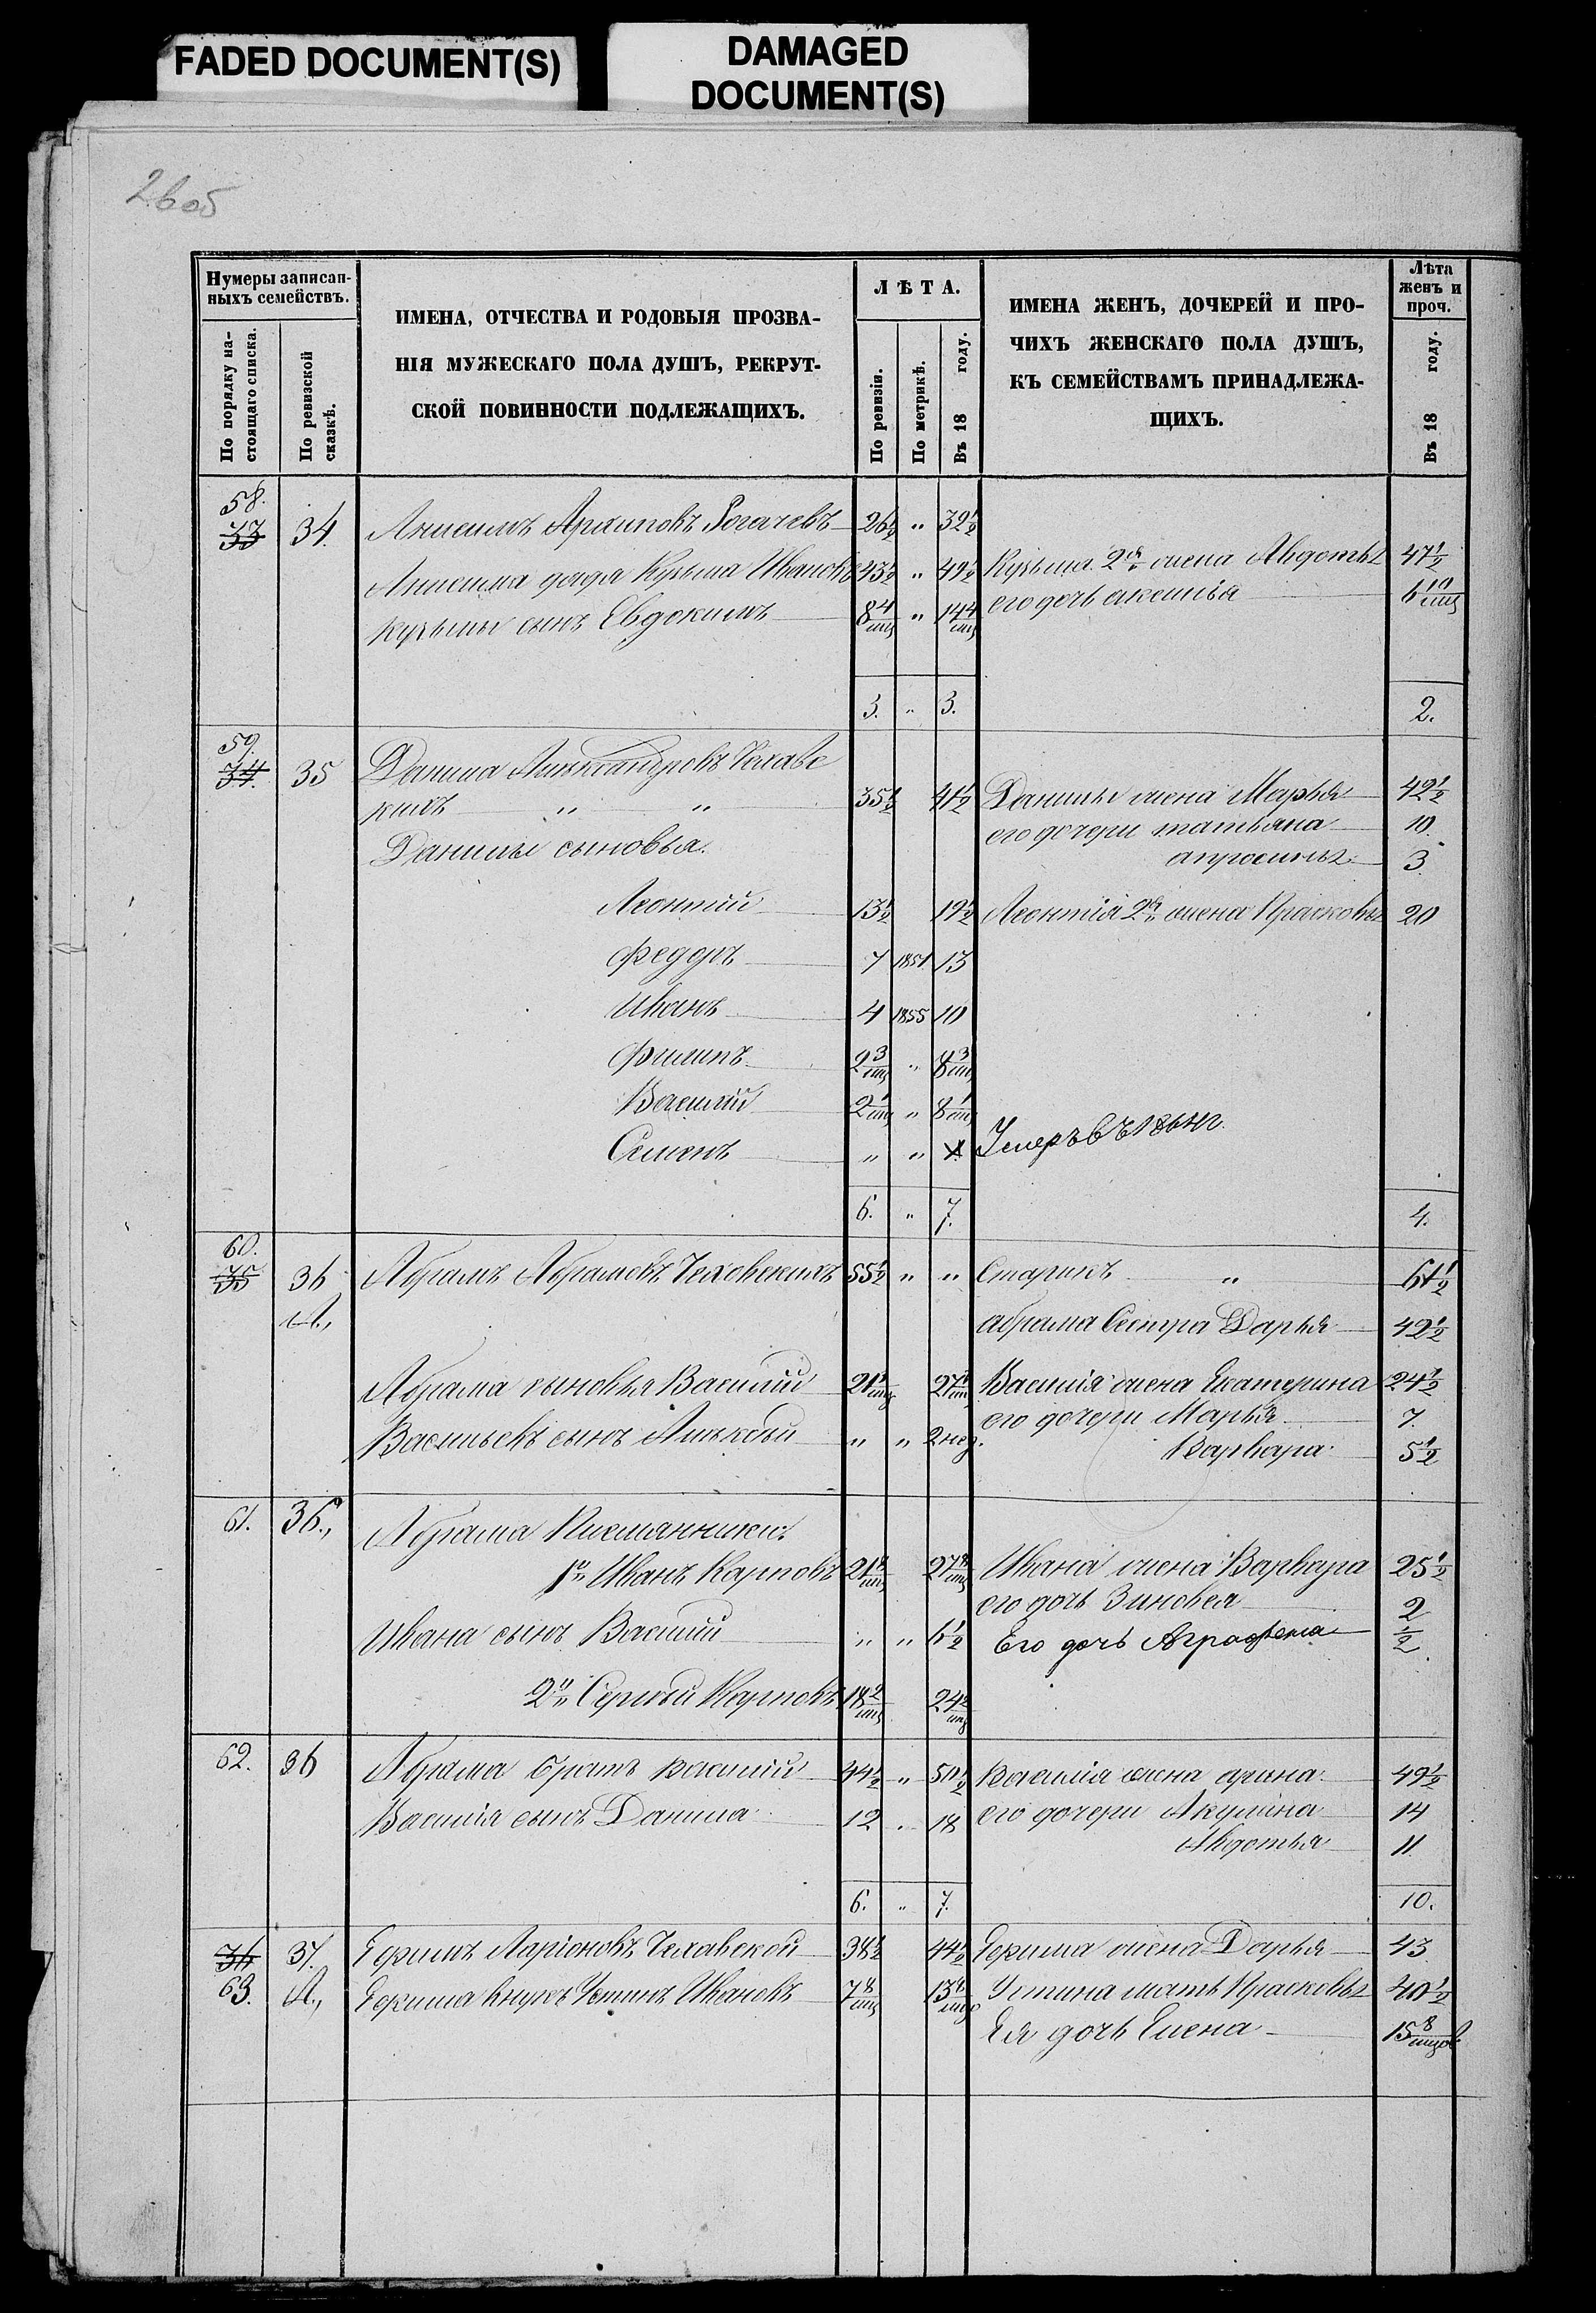 FADED DOCUMENT(S)
DAMAGED
DOCUMENT(S)
Нумеры записан-
ныхъ семействъ.
По порядку на-
стоящаго списка.
По ревизской
сказкѣ.
ИМЕНА, ОТЧЕСТВА И РОДОВЫЯ ПРОЗВА-
НІЯ МУЖЕСКАГО ПОЛА ДУШЪ, РЕКРУТ-
СКОЙ ПОВИННОСТИ ПОДЛЕЖАЩИХЪ.
ЛѢТА.
По ревизіи.
По метрикѣ.
Въ 18 году.
ИМЕНА ЖЕНЪ, ДОЧЕРЕЙ И ПРО-
ЧИХЪ ЖЕНСКАГО ПОЛА ДУШЪ,
КЪ СЕМЕЙСТВАМЪ ПРИНАДЛЕЖА-
ЩИХЪ.
Лѣта
женъ и
проч.
Въ 18 году.
58.
33 34 Анисимъ Архиповъ Рогачевъ 26½ " 32½
Анисима дядя Кузьма Ивановъ 43½ " 49½ Кузьма 2я жена Авдотья 47½
Кузьмы сынъ Евдокимъ 8 4/мц " 14 4/мц его дочь аксинья 6 10/мц
3. " 3. 2.
59.
34. 35 Данила Алѣксандровъ Челавс
кихъ " " 35½ 41½ Данилы жена Марья 42½
Данилы сыновья. его дочери татьяна 10
апросинья 3
Леонтій 13½ 19½ Леонтія 2я жена Прасковья 20
Федоръ 7 1851 13
Иванъ 4 1855 10
Филипъ 2 3/мц " 8 3/мц
Василій 2 1/мц " 8 1/мц
Семенъ " " Умеръ въ 1864 г.
6. " 7. 4.
60.
35 36 Абрамъ Абрамовъ Человскихъ 55½ " " Старикъ " 61½
А., абрама Сестра Дарья 42½
Абрама сыновья Василій 21 1/мц 27 1/мц Василія жена Екатерина 24½
Васильевъ сынъ Алѣксѣй " " 2 нед. его дочери Марья 7.
Варвара 5½
61. 36., Абрама Племянники:
1й Иванъ Карповъ 21 8/мц 27 8/мц Ивана жена Варвара 25½
его дочь Зиновея 2
Ивана сынъ Василій " " 6½ Его дочь Аграфена ½
2й Сергѣй Карповъ 18 2/мц 24 2/мц
62. 36 Абрама братъ Василій 44½ " 50½ Василія жена арина 49½
Василія сынъ Данила 12 " 18 его дочери Акулина 14
Авдотья 11.
6. " 7. 10.
36 37. Ефимъ Ларіоновъ Челавской 38½ 44½ Ефима жена Дарья 43
63. А., Ефима внукъ Устинъ Ивановъ 7 8/мц 13 8/мц Устина мать Прасковья 40½
Ея дочь Елена 15 8/мцов